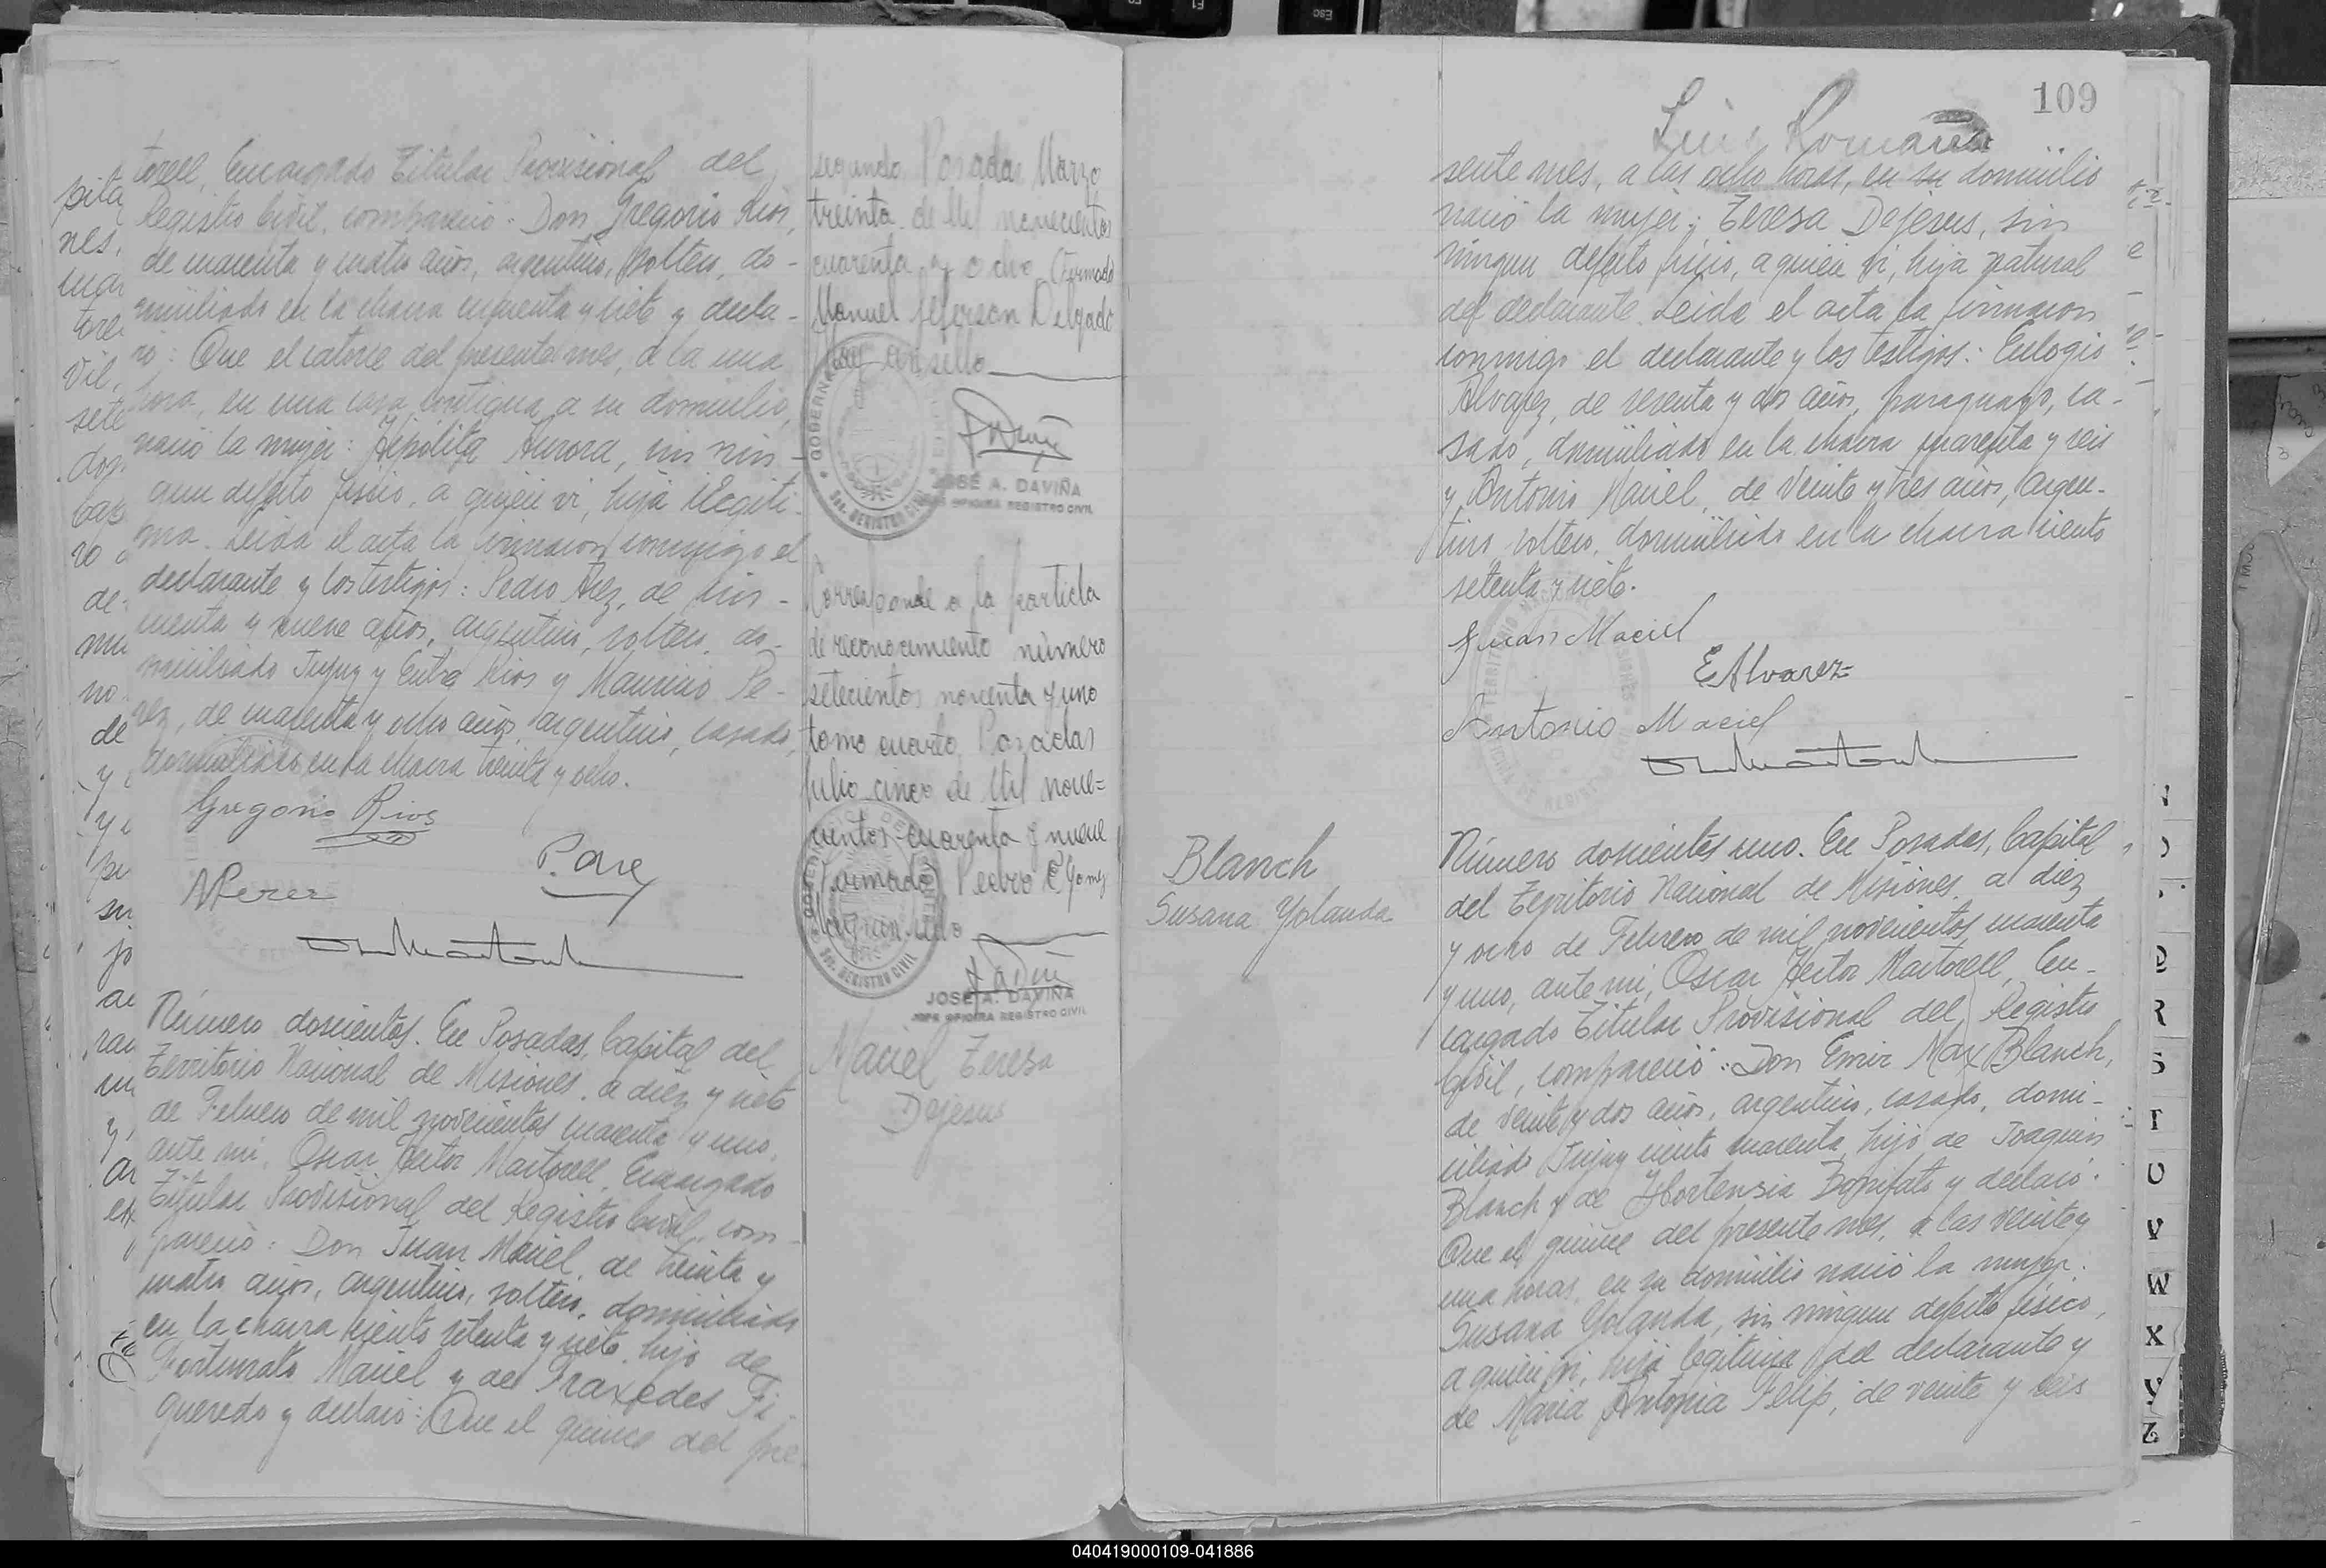 torell, Encargado Titular Provisional del
Registro Civil, compareció: Don Gregorio Rios,
de cuarenta y cuatro años, argentino, soltero, do-
miciliado en la chacra cincuenta y siete y decla-
ró: Que el catorce del presente mes, a la una
hora, en una casa contigua a su domicilio,
nació la mujer: Hipólita Aurora, sin nin-
gun defecto fisico, a quien vi, hija ilegiti-
ma. Leida el acta la firmaron conmigo el
declarante y los testigos: Pedro Arez, de cin-
cuenta y nueve años, argentino, soltero, do-
miciliado Jujuy y Entre Rios y Mauricio Pe-
rez, de cuarenta y ocho años, argentino, casado,
domiciliado en la chacra treinta y ocho.
Gregorio Rios
P. Are
MPerez
Número doscientos. En Posadas, Capital del
Territorio Nacional de Misiones, a diez y siete
de Febrero de mil novecientos cuarenta y uno,
ante mi, Oscar Hector Martorell, Encargado
Titular Provisional del Registro Civil, com-
pareció: Don Juan Maciel, de treinta y
cuatro años, argentino, soltero, domiciliado
en la chacra ciento setenta y siete, hijo de
Fortunato Maciel y de Praxedes Fi
gueredo y declaró: Que el quince del pre-
segundo Posadas Marzo
treinta de Mil novecientos
cuarenta y ocho (Firmado
Manuel Jeferson Delgado
Hay un sello
JOSÉ A. DAVIÑA
JEFE OFICINA REGISTRO CIVIL
Corresponde a la partida
de reconocimiento número
setecientos noventa y uno
tomo cuarto, Posadas
Julio cinco de Mil nove=
cientos cuarenta y nueve
(Firmado) Pedro E Gomez
Hay un sello
JOSÉ A. DAVIÑA
JEFE OFICINA REGISTRO CIVIL
Maciel Teresa
Dejesus
109
Luis Roman
sente mes, a las ocho horas, en su domicilio
nació la mujer: Teresa Dejesus, sin
ningun defecto fisico, a quien vi, hija natural
del declarante. Leida el acta la firmaron
conmigo el declarante y los testigos: Eulogio
Alvarez, de sesenta y dos años, paraguayo, ca-
sado, domiciliado en la chacra cuarenta y seis
y Antonio Maciel, de veinte y tres años, argen-
tino, soltero, domiciliado en la chacra ciento
setenta y siete.
Juan Maciel
E Alvarez
Antonio Maciel
Blanch
Susana Yolanda
Número doscientos uno. En Posadas, Capital
del Territorio Nacional de Misiones, a diez
y ocho de Febrero de mil novecientos cuarenta
y uno, ante mi, Oscar Hector Martorell, En-
cargado Titular Provisional del Registro
Civil, compareció: Don Emir Max Blanch,
de veinte y dos años, argentino, casado, domi-
ciliado Jujuy ciento cuarenta, hijo de Joaquin
Blanch y de Hortensia Bonifato y declaró:
Que el quince del presente mes, a las veinte y
una horas, en su domicilio nació la mujer:
Susana Yolanda, sin ningun defecto fisico,
a quien vi, hija legitima del declarante y
de Maria Antonia Felip, de veinte y seis
R
S
T
U
V
W
X
Y
Z
040419000109-041886